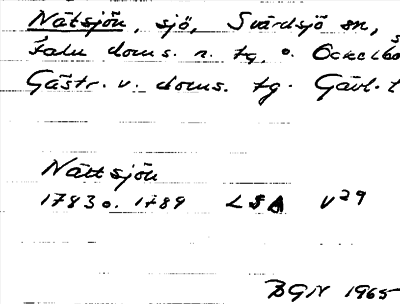 Nätsjön, sjö, Svärdsjö sn, s
Falu doms. n. tg. o. Ockelbo
Gästr. v. doms. tg. Gävl. l
Nättsjön
1783 o. 1789 LSA V29
BGN 1965